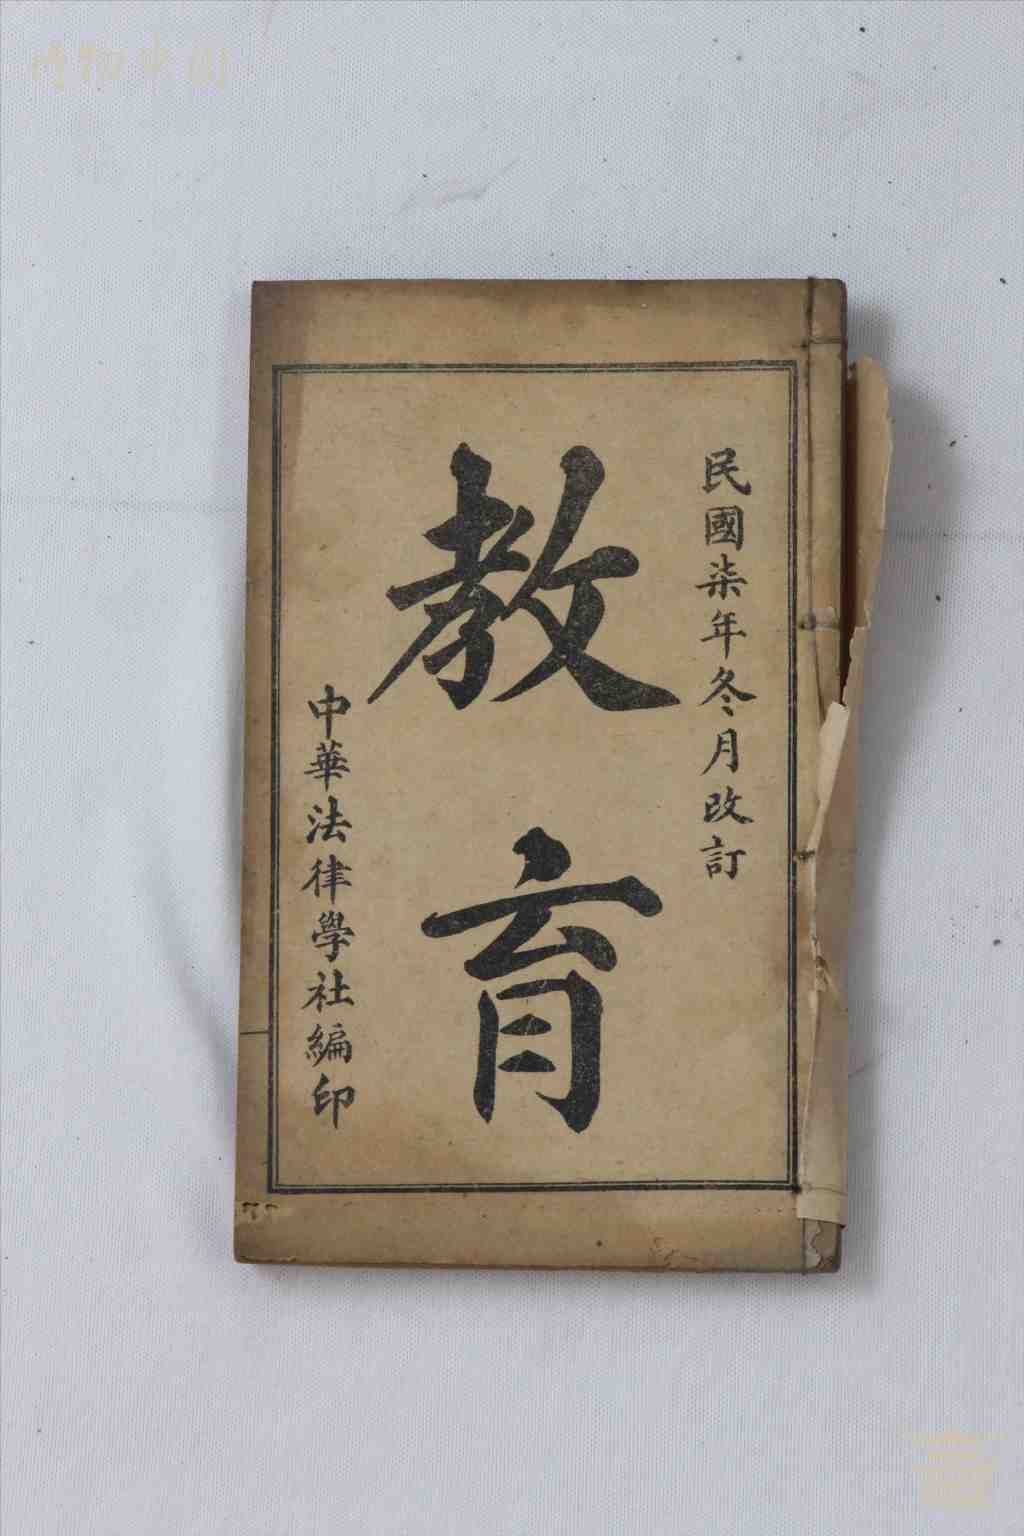 博物中国
民國柒年冬月改訂
教育
中華法律學社編印